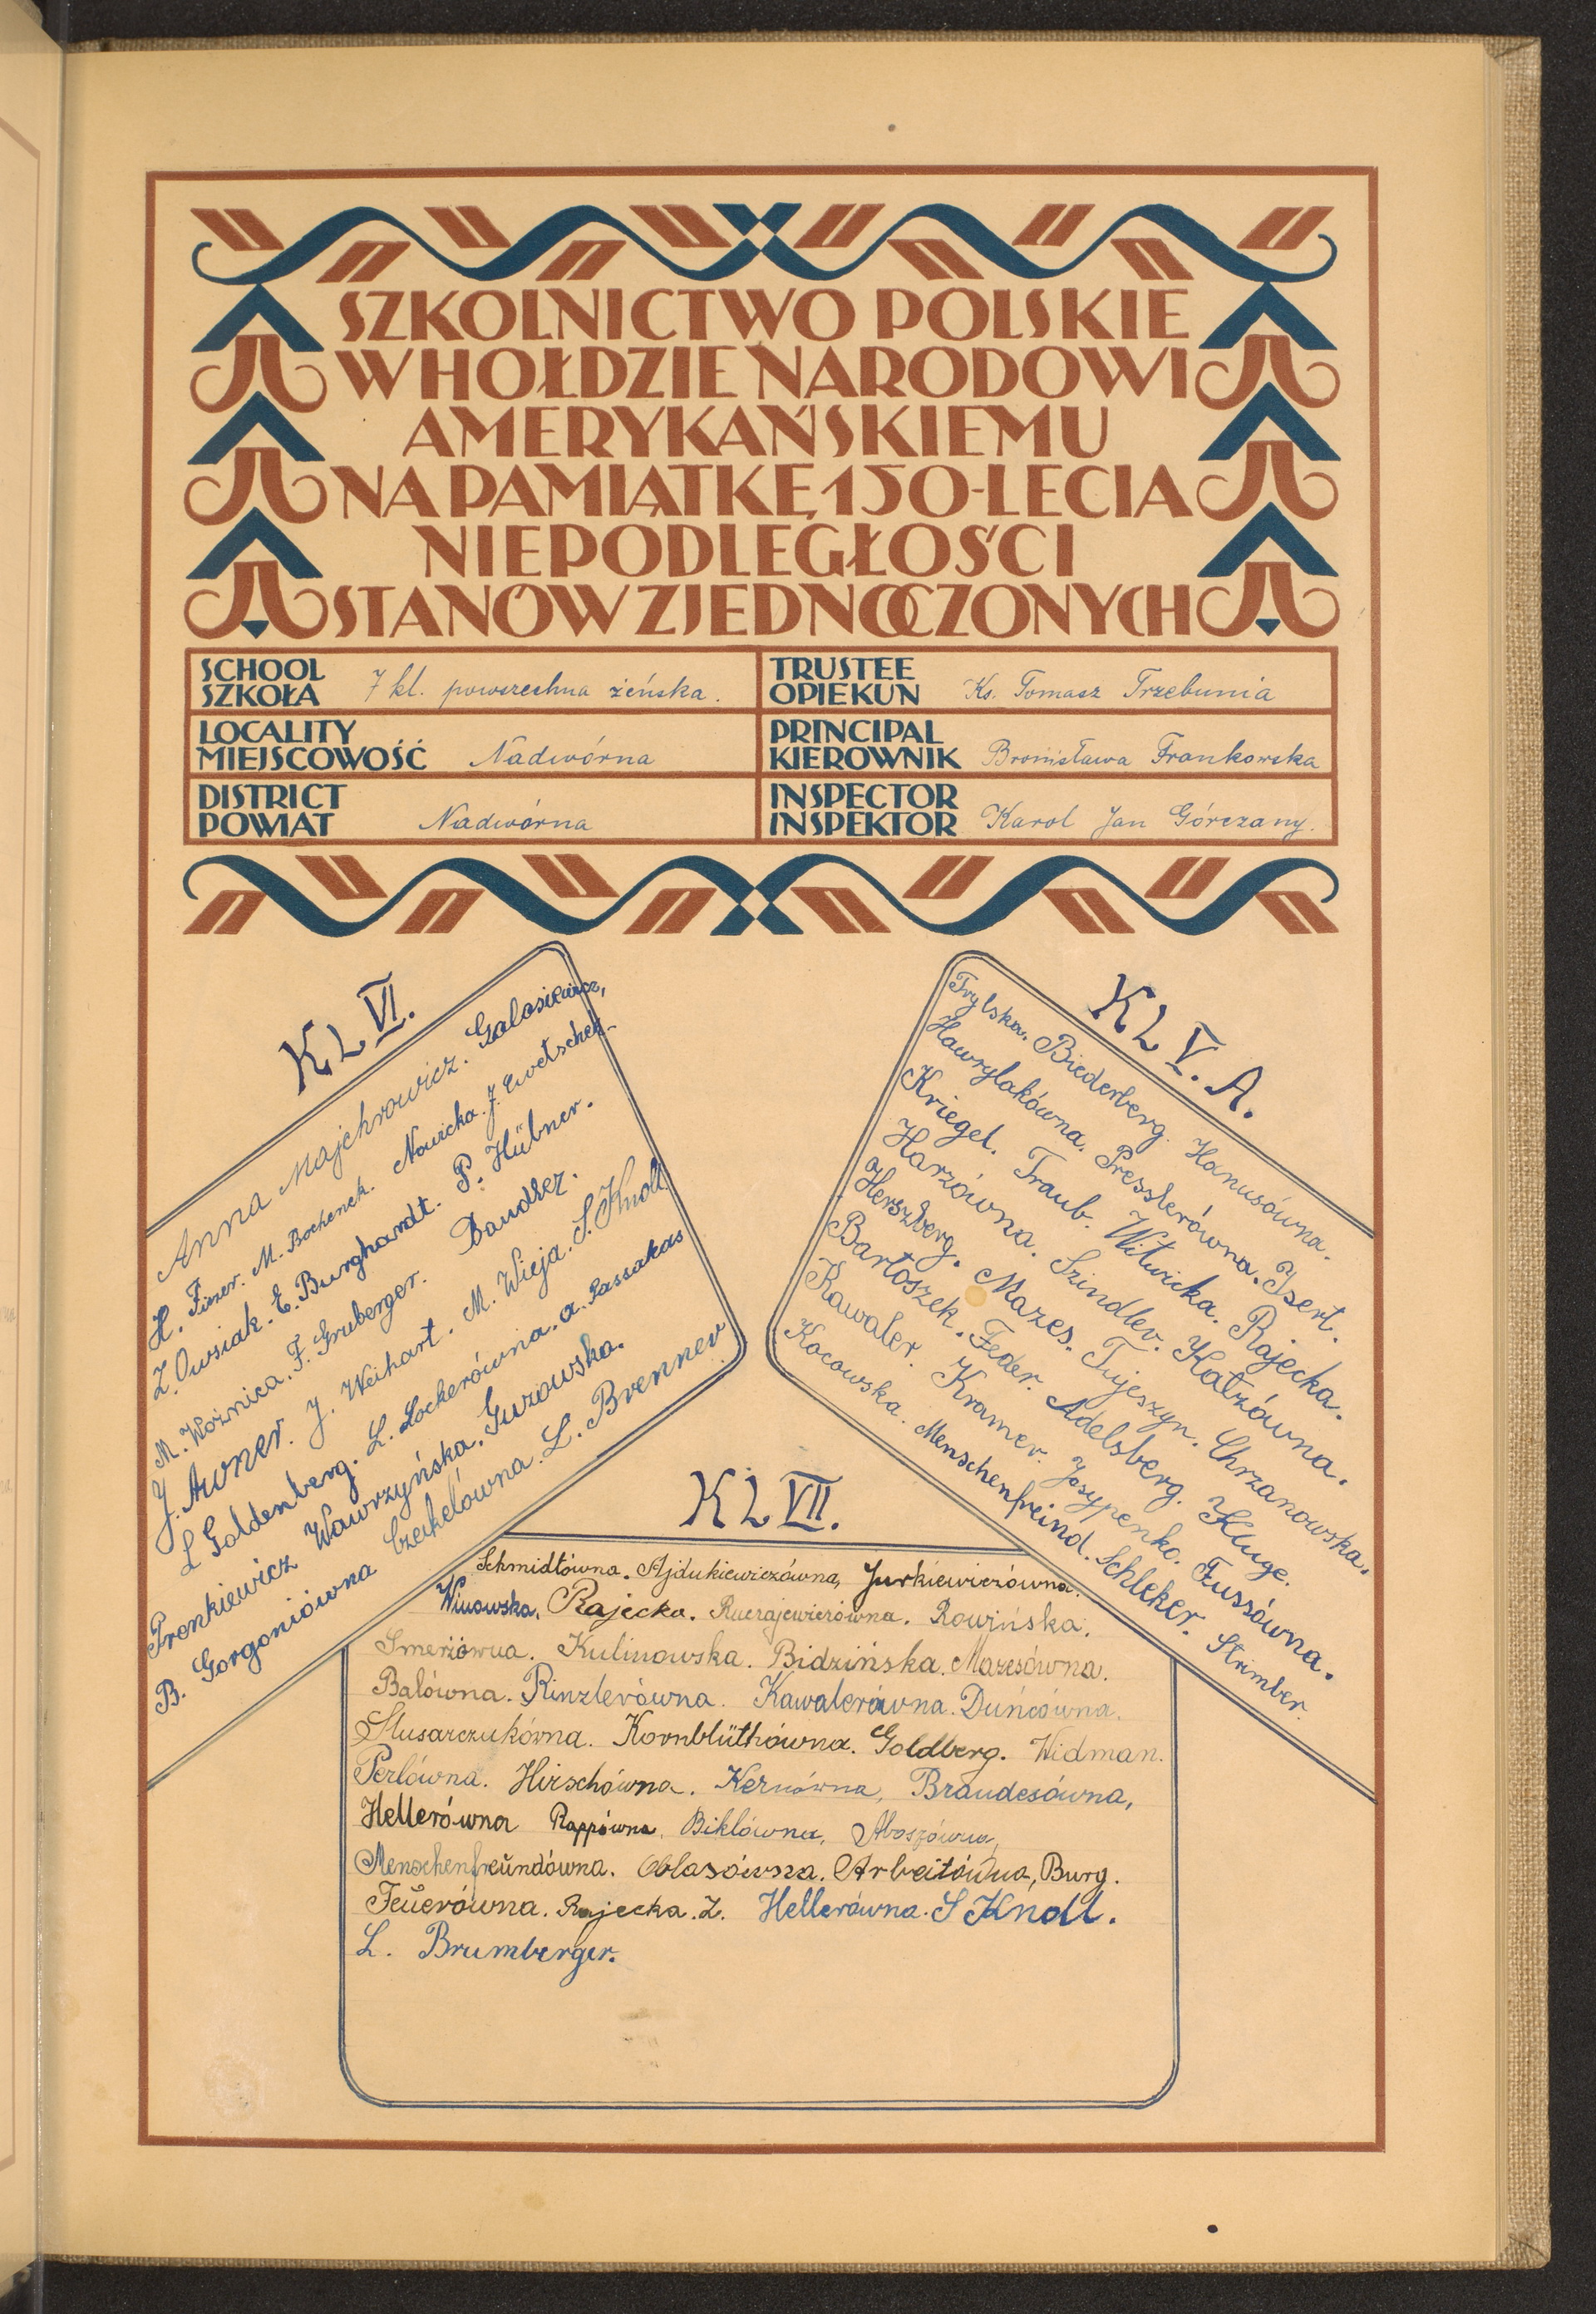 SZKOLNICTWO POLSKIE
W HOŁDZIE NARODOWI
AMERYKAŃSKIEMU
NA PAMIĄTKĘ 150-LECIA
NIEPODLEGŁOŚCI
STANÓW ZJEDNOCZONYCH
SCHOOL
SZKOŁA 7 kl. powszechna żeńska.
TRUSTEE
OPIEKUN Ks. Tomasz Trzebunia
LOCALITY
MIEJSCOWOŚĆ Nadwórna
PRINCIPAL
KIEROWNIK Bronisława Frankowska
DISTRICT
POWIAT Nadwórna
INSPECTOR
INSPEKTOR Karol Jan Górczany.
KL VI.
Anna Majchrowicz. Galasiewicz,
H. Fiszer. M. Bochenek. Nowicka. J. Ewetschek.
Z. Owsiak. E. Burghardt. P. Hübner.
M. Woźnica. F. Gruberger. Daudrez.
J. Awner. J. Weihart. M. Wieja. S. Knoll
L Goldenberg. L. Lockerówna. A. Passakas
Pronkiewicz Wawrzyńska. Gurowska.
B. Gorgoniówna Czechelówna. L. Brenner
KL V. A.
Trylska. Biederberg. Hanusówna.
Hawrylakówna. Presslerówna. Isert.
Kriegel. Traub. Witwicka. Rajecka.
Harzówna. Szindler. Katzówna.
Herszberg. Mazes. Tujeszyn. Chrzanowska.
Bartoszek. Feder. Adelsberg. Kluge.
Kawaler. Kramer. Josypenko. Fussówna.
Kocowska. Menschenfreind. Schleker. Strimber.
KL VII.
Schmidtówna. Ajdukiewiczówna, Jurkiewiczówna.
Winowska. Rajecka. Rowińska.
Smerżówna. Kulinowska. Bidzińska. Mazesówna.
Balówna. Rinzlerówna. Kawalerówna. Duńcówna.
Ślusarczukówna. Kornblüthówna. Goldberg. Widman.
Perlówna. Hirschówna. Kernówna, Brandesówna,
Hellerówna Rappówna. Biklówna,
Menschenfreundówna. Oblasówna. Arbeitówna, Burg.
Feuerówna. Rajecka. Z. Hellerówna. S Knoll.
L. Brumberger.